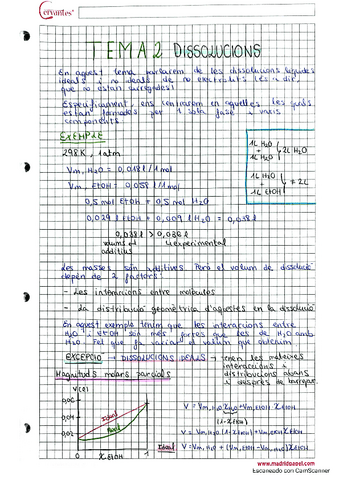 Cervantes
TEMA 2 DISSOLUCIONS
En aquest tema parlarem de les dissolucions líquides
ideals i no ideals de no electròlits (és a dir,
que no estan carregades)
Específicament, ens centrarem en aquelles les quals
estan formades per 1 sola fase i varis
components.
EXEMPLE
298K, 1atm
Vm, H2O = 0,018 l/1mol
Vm, EtOH = 0,058 l/1mol
0,5 mol EtOH + 0,5 mol H2O
0,029 l EtOH + 0,009 l H2O = 0,038 l
0,038 l > 0,036 l
volums
additius
experimental
1L H2O
+
1L H2O
2L H2O
1L H2O
+
1L EtOH
≠ 2L
Les masses són additives. Però el volum de dissolució
depèn de 2 factors:
- Les interaccions entre molècules
- La distribució geomètrica d'aquestes en la dissolució
En aquest exemple tenim que les interaccions entre
H2O i EtOH són més fortes que les de H2O amb
H2O. Fet que fa variar el volum que obtenim.
EXCEPCIÓ → DISSOLUCIONS IDEALS → tenen les mateixes
interaccions i
distribucions abans
i després de barrejar.
Magnituds molars parcials
V(l)
0,06
0,04
0,02
Ideal
Real
0
XEtOH
1
V = Vm,H2O XH2O + Vm,EtOH XEtOH
(1-XEtOH)
V = Vm,H2O (1-XEtOH) + Vm,EtOH XEtOH
Ideal
V = Vm,H2O + (Vm,EtOH - Vm,H2O) XEtOH
www.madridpapel.com
Escaneado con CamScanner